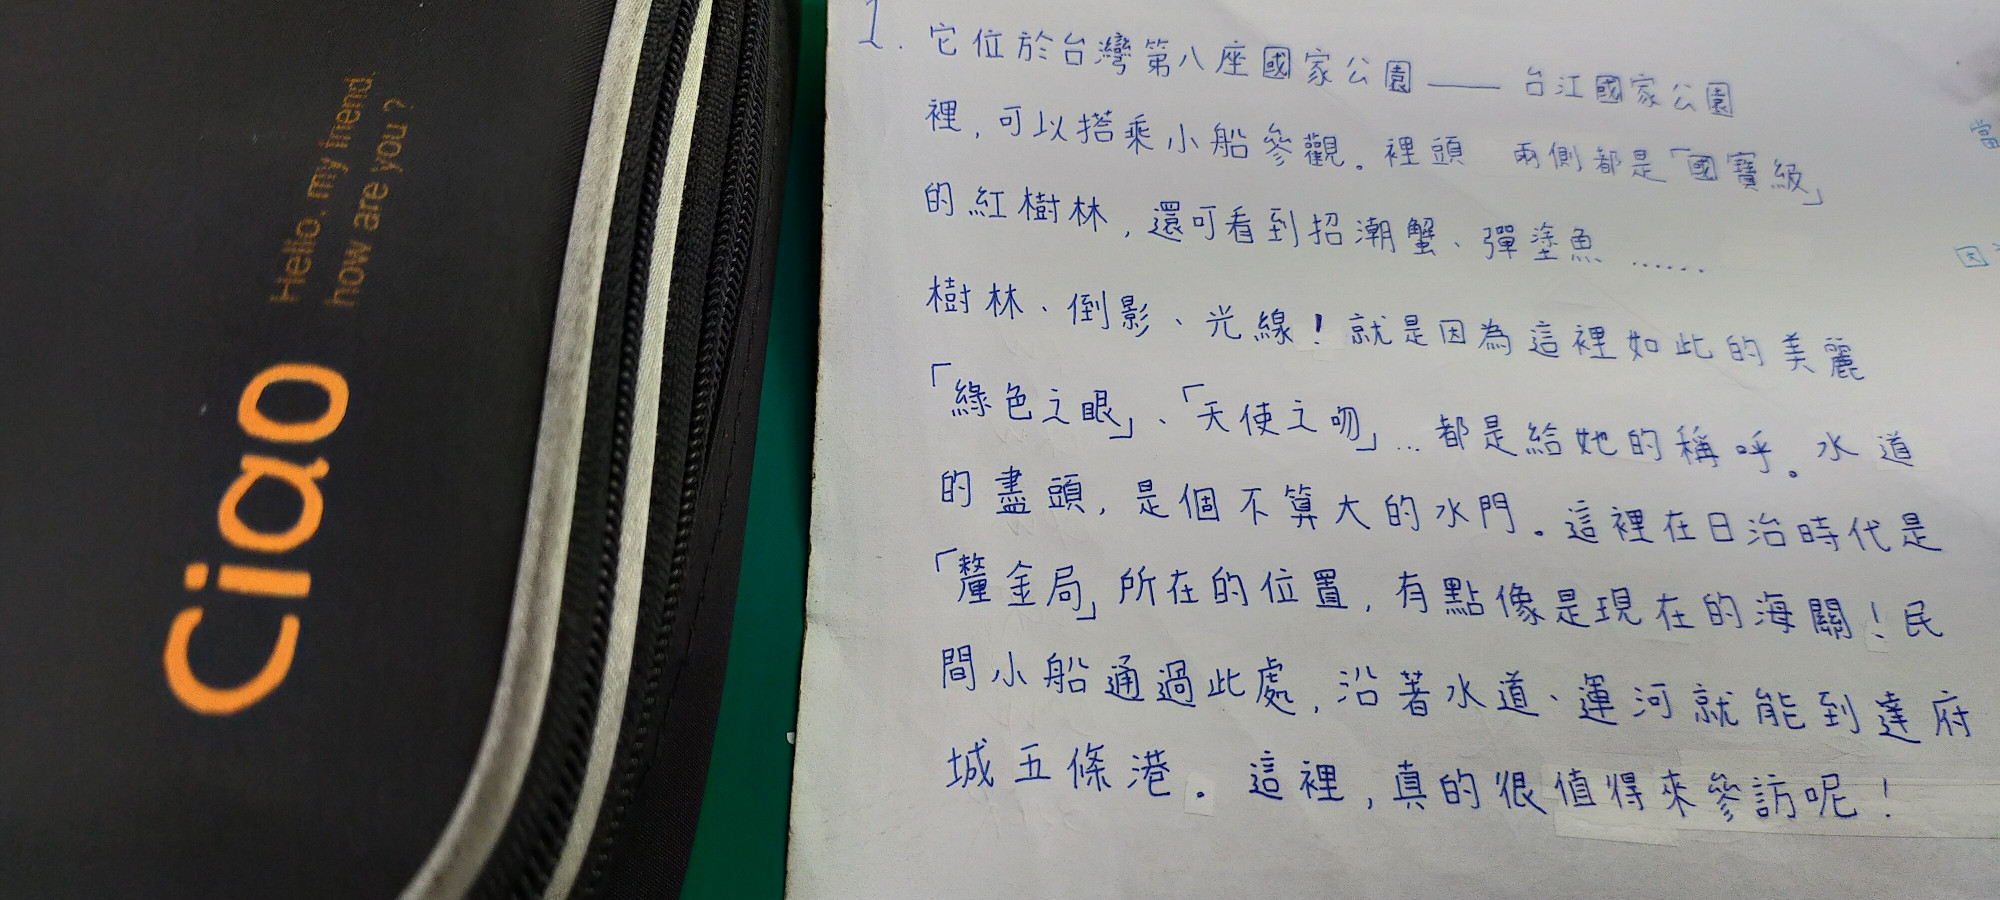 Ciao
Hello, my friend,
how are you ?
1. 它位於台灣第八座國家公園——台江國家公園
裡,可以搭乘小船參觀。裡頭 兩側都是「國寶級」
的紅樹林,還可看到招潮蟹、彈塗魚……
樹林、倒影、光線!就是因為這裡如此的美麗
「綠色之眼」、「天使之吻」…都是給她的稱呼。水道
的盡頭,是個不算大的水門。這裡在日治時代是
「釐金局」所在的位置,有點像是現在的海關!民
間小船通過此處,沿著水道、運河就能到達府
城五條港。這裡,真的很值得來參訪呢!
當
因